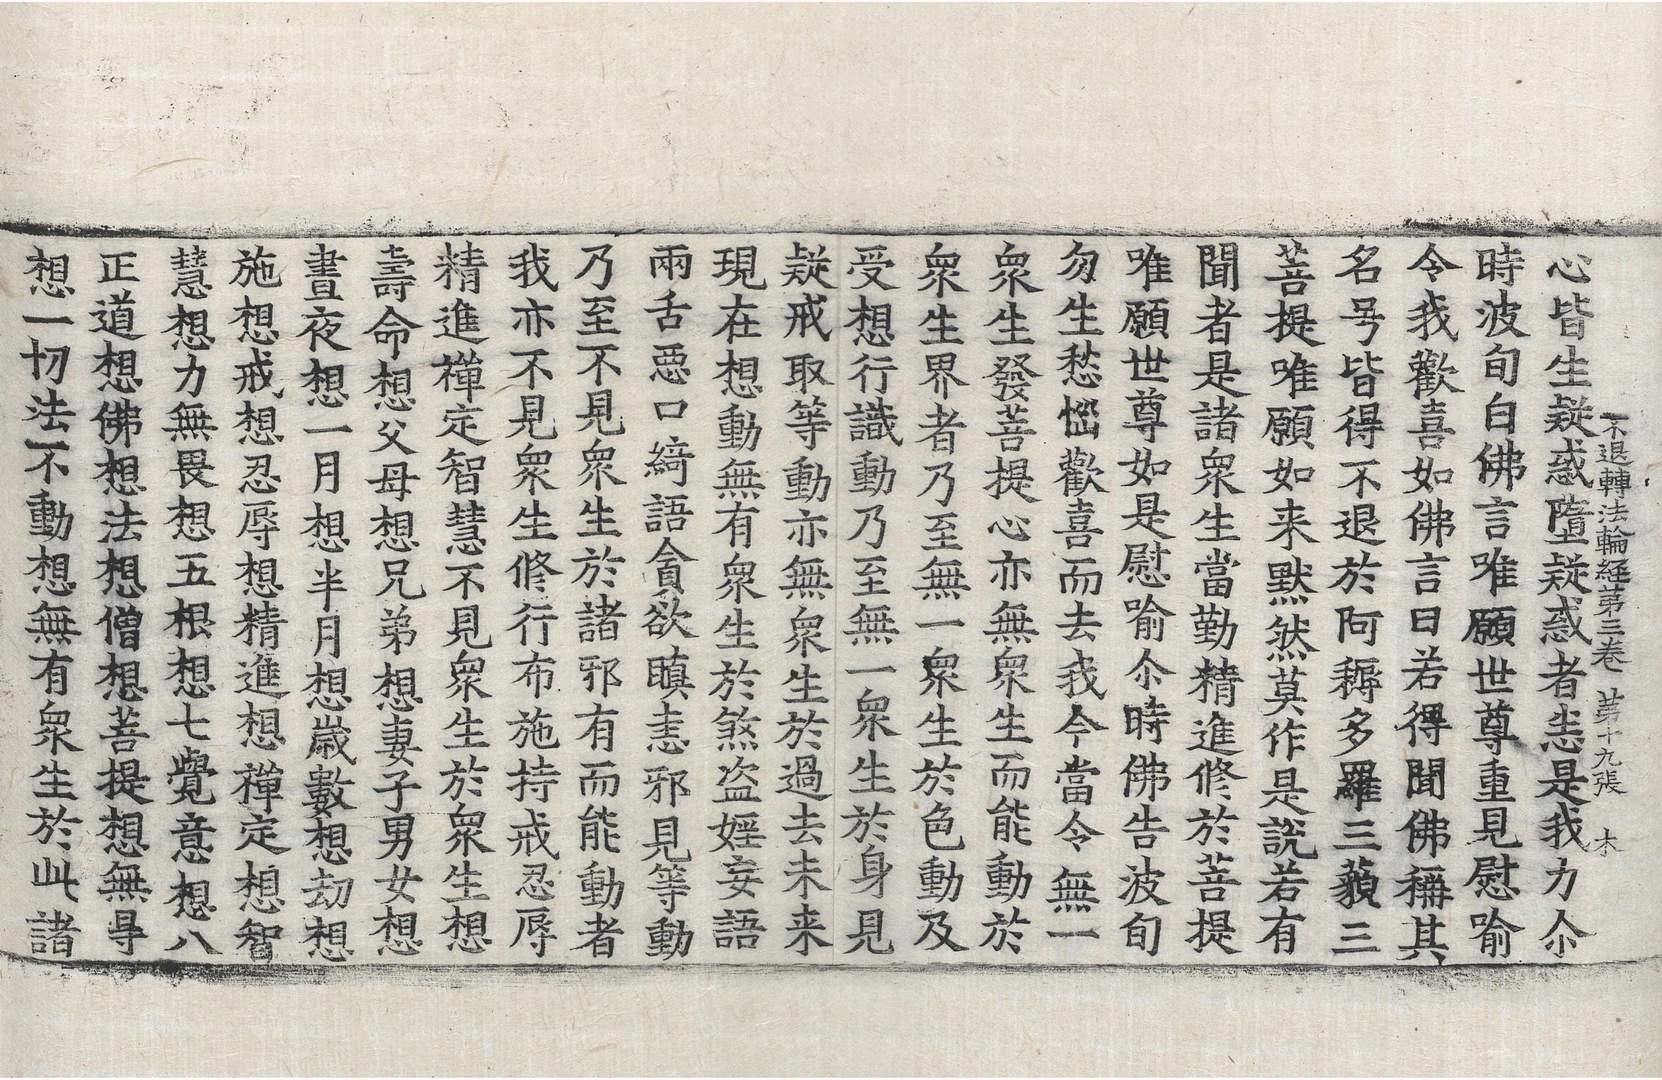 不退轉法輪經第三卷 第十九張 木
心皆生疑惑墮疑惑者恚是我力尒
時波旬白佛言唯願世尊重見慰喻
令我歡喜如佛言曰若得聞佛稱其
名号皆得不退於阿耨多羅三藐三
菩提唯願如来默然莫作是說若有
聞者是諸衆生當勤精進修於菩提
唯願世尊如是慰喻尒時佛告波旬
勿生愁惱歡喜而去我今當令無一
衆生發菩提心亦無衆生而能動於
衆生界者乃至無一衆生於色動及
受想行識動乃至無一衆生於身見
疑戒取等動亦無衆生於過去未来
現在想動無有衆生於煞盜婬妄語
兩舌惡口綺語貪欲瞋恚邪見等動
乃至不見衆生於諸邪有而能動者
我亦不見衆生修行布施持戒忍辱
精進禪定智慧不見衆生於衆生想
壽命想父母想兄弟想妻子男女想
晝夜想一月想半月想歲數想劫想
施想戒想忍辱想精進想禪定想智
慧想力無畏想五根想七覺意想八
正道想佛想法想僧想菩提想無㝵
想一切法不動想無有衆生於此諸